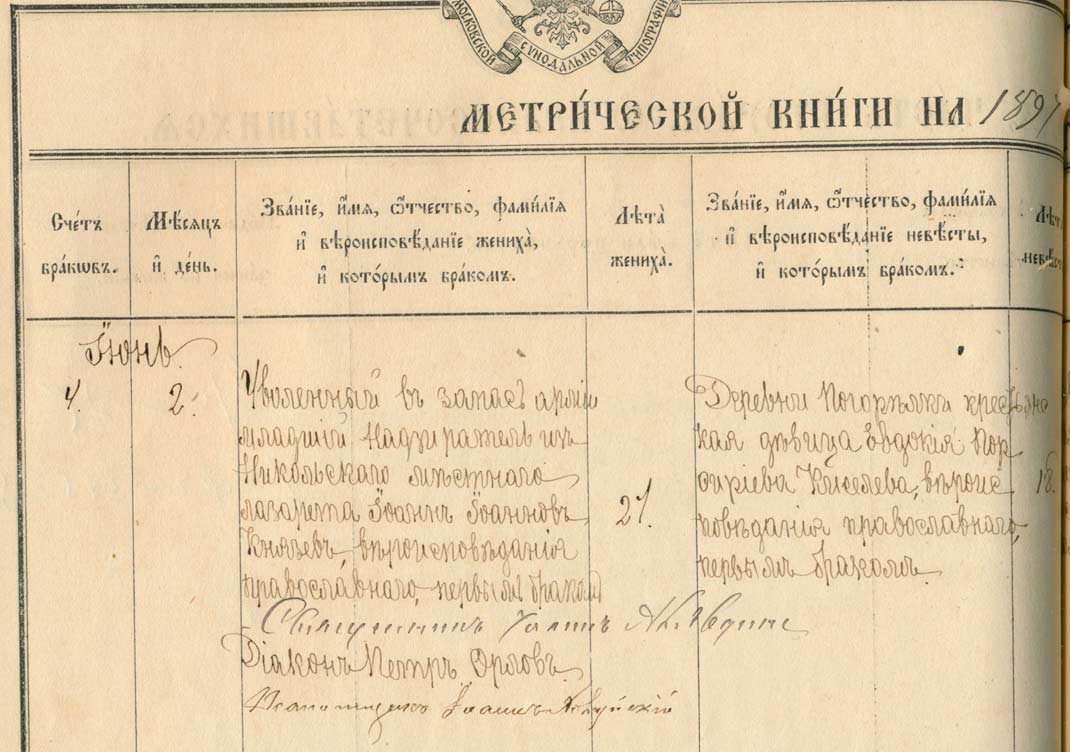 МОСКОВСКОЙ СѴНОДАЛЬНОЙ ТИПОГРАФІИ
МЕТРИ́ЧЕСКОЙ КНИ́ГИ НА 1897
Сче́тъ
бра́кωвъ.
Мѣ́сяцъ
и҆ де́нь.
Зва́нїе, и҆́мѧ, ѻ҆́тчество, фами́лїѧ
и҆ вѣроисповѣ́данїе жениха̀,
и҆ кото́рымъ бра́комъ.
Лѣта̀
жениха.
Зва́нїе, и҆́мѧ, ѻ҆́тчество, фами́лїѧ
и҆ вѣроисповѣ́данїе невѣ́сты,
и҆ кото́рымъ бра́комъ.
Лѣт
невѣс
Іюнь
4.
2.
Уволенный въ запасъ арміи
младшій Надзиратель изъ
Никольскаго мѣстнаго
лазарета Іоаннъ Іоанновъ
Князевъ, вѣроисповѣданія
православнаго, первымъ бракомъ
27.
Деревни Погорѣлки крестьянс
кая дѣвица Евдокія Пор
фиріева Киселева, вѣроис
повѣданія православнаго,
первымъ бракомъ.
18.
Священникъ Іоаннъ
Діаконъ Петръ Орловъ.
Псаломщикъ Іоаннъ